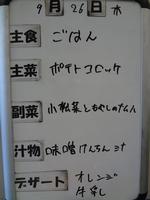 9月26日 木
主食 ごはん
主菜 ポテトコロッケ
副菜 小松菜ともやしのナムル
汁物 味噌けんちん汁
デザート オレンジ
牛乳